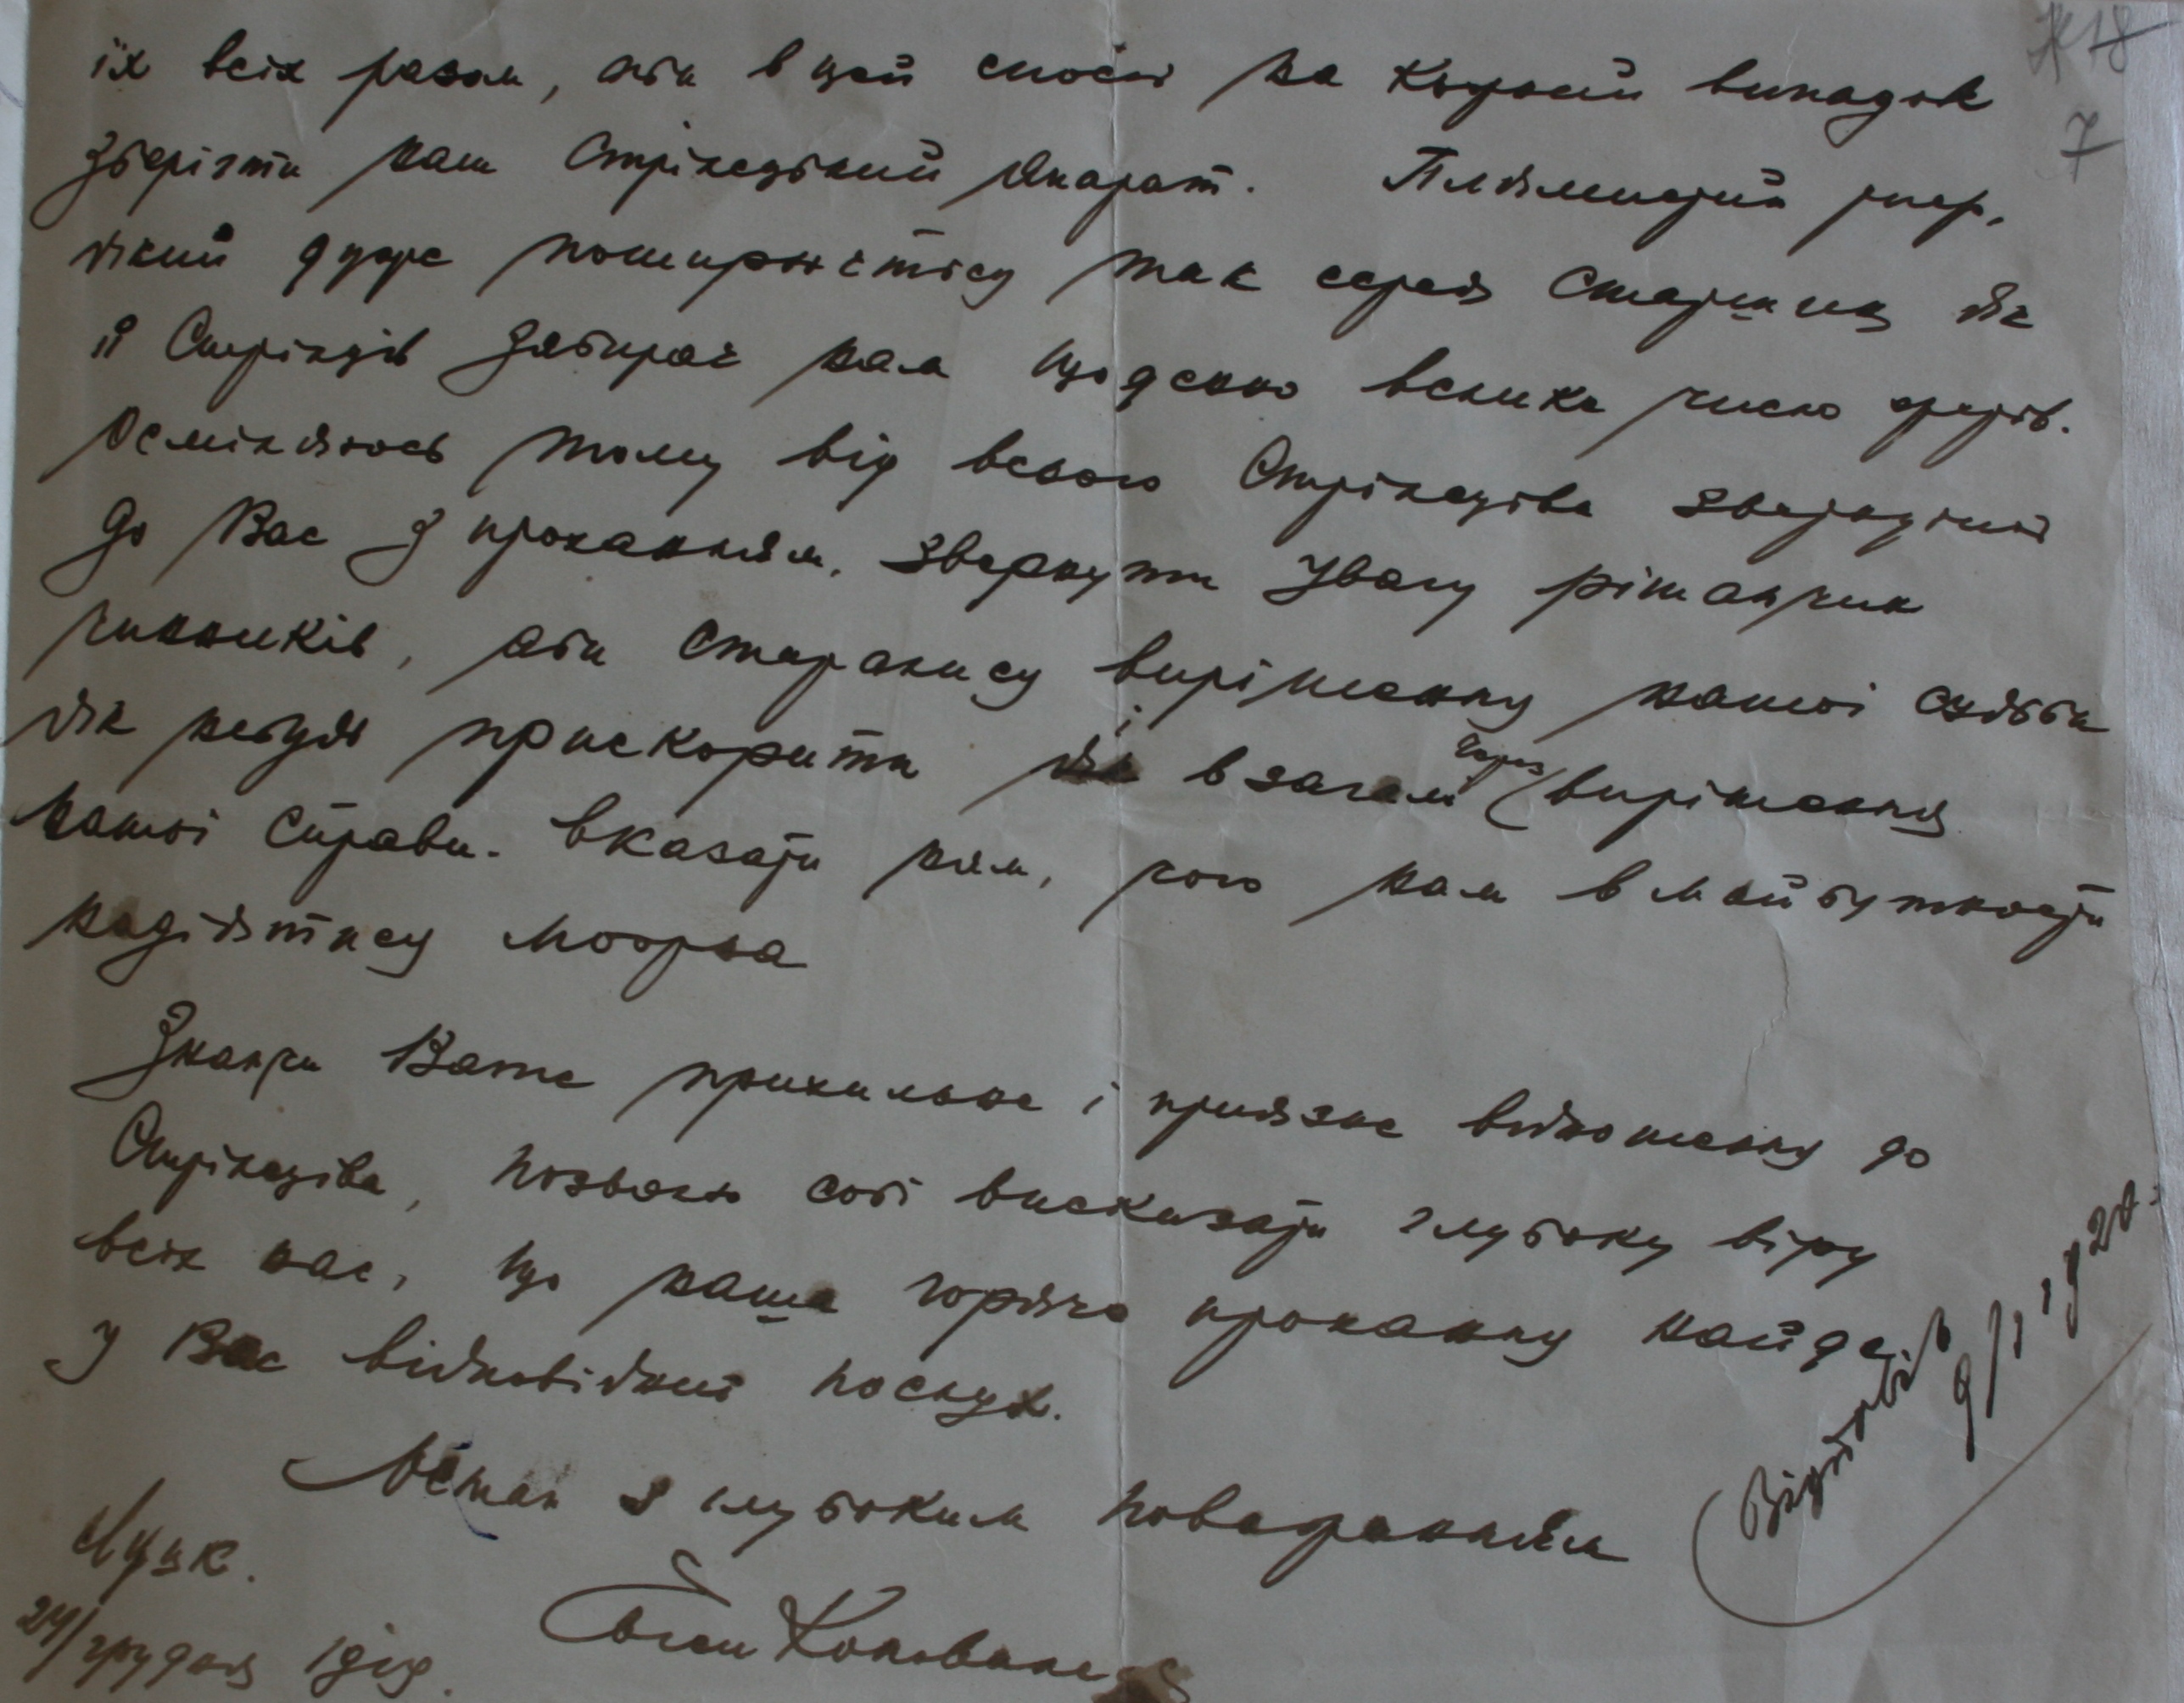 їх всіх разом, аби в цей спосіб на кожний випадок
зберігти наш Стрілецький Апарат. Плямистий тиф,
який дуже поширюєтьсу так серед Старшин як
й Стрільців забирає нам щоденно велике число жертв.
Осмілююсь тому від всього Стрілецтва звернутись
до Вас з проханням, звернути увагу рішаючих
чинників, аби старалису вирішенну нашої судьби
як небудь прискорити і взагалі через вирішення
нашої справи. Вказати нам, чого нам в майбутности
надіятису можна
Знаючи Ваше прихильне і приязне відношенну до
Стрілецтва, позволю собі висказати глубоку віру
всіх нас, що наше горяче проханну найде
у Вас відповідний послух.
Остаю з глубоким поважанням
Луцьк.
24/грудня 1919.
Євген Коновалець
Відповів
9/I 1920
Ж 18
7